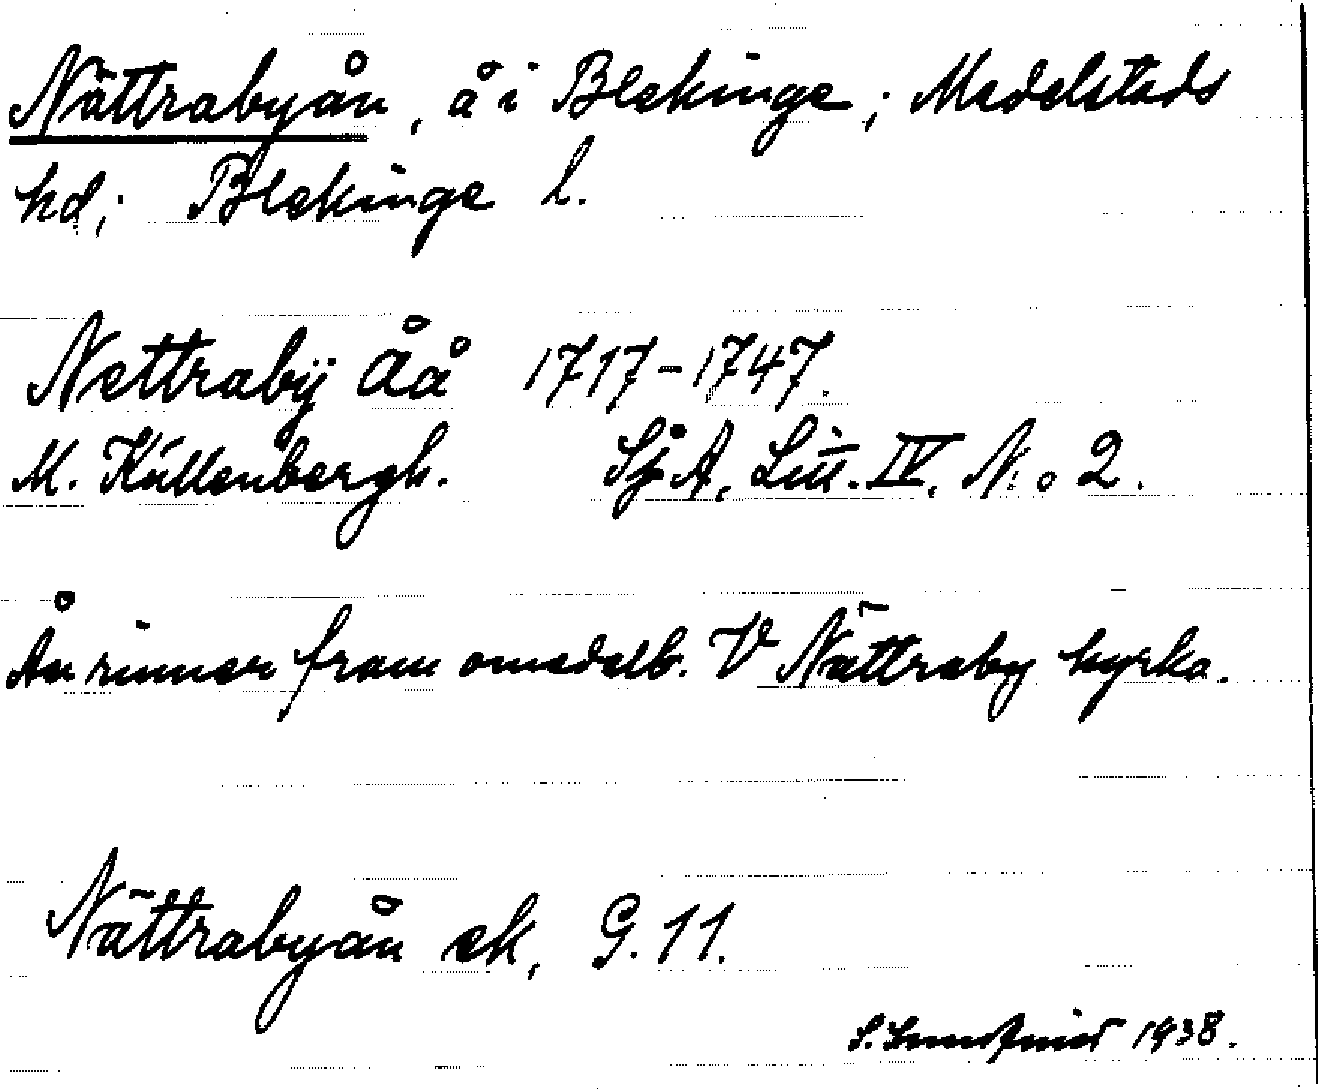 Nättrabyån, å i Blekinge; Medelstads
hd; Blekinge l.
Nettrabÿ Åå 1717-1747.
M. Küllenbergh. Sj A, Litt. IV, N:o 2.
Ån rinner fram omedelb. V Nättraby kyrka.
Nättrabyån ek, G. 11.
S. 1938.